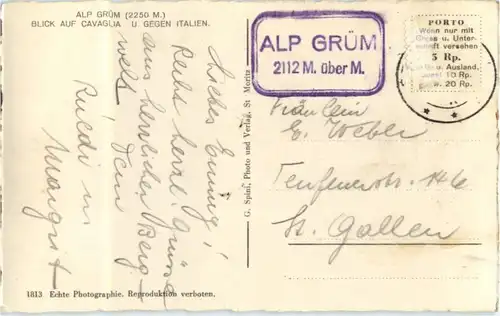 ALP GRÜM (2250 M.)
BLICK AUF CAVAGLIA U GEGEN ITALIEN.
Liebes Emmy!
Recht herzl. Grüsse
aus herrlicher Berg-
welt
Ruedi u.
Margrit
1813 Echte Photographie. Reproduktion verboten.
G. Spinl, Photo und Verlag, St Moritz
ALP GRÜM
2112 M. über M.
PORTO
Wenn nur mit
Gruss u. Unter-
schrift versehen
5 Rp.
u. Ausland.
10 Rp.
20 Rp.
Fräulein
E. Weber
Teufenerstr. 146
St. Gallen